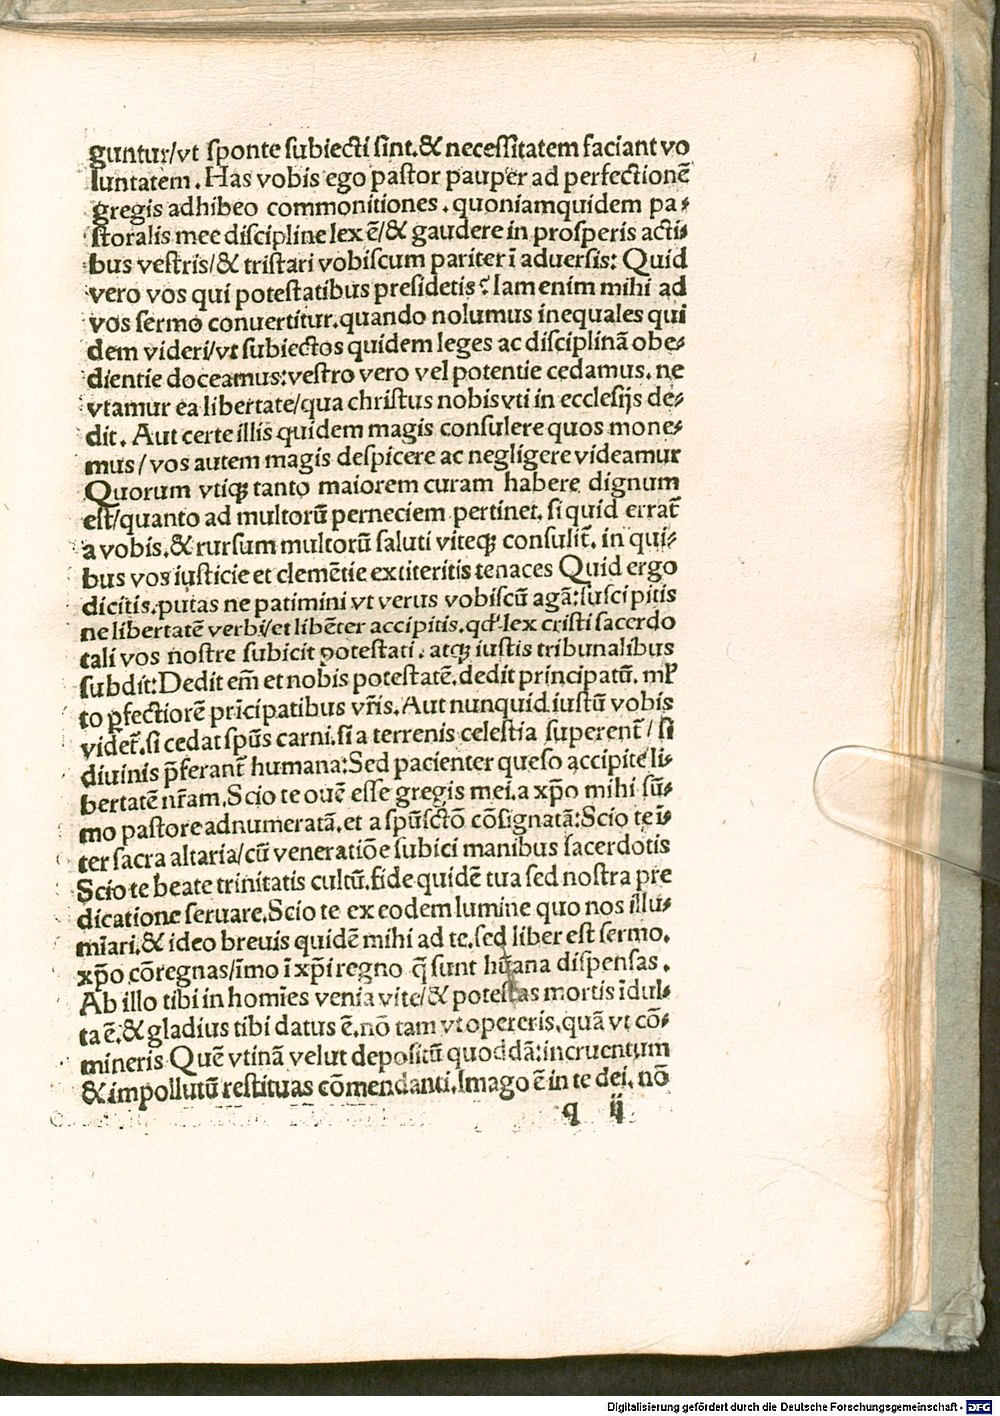 guntur/vt sponte subiecti sint.& necessitatem faciant vo
luntatem. Has vobis ego pastor pauper ad perfectionē
gregis adhibeo commonitiones. quoniamquidem pa⸗
storalis mee discipline lex ē/& gaudere in prosperis acti⸗
bus vestris/& tristari vobiscum pariter ī aduersis: Quid
vero vos qui potestatibus presidetis? Iam enim mihi ad
vos sermo conuertitur.quando nolumus inequales qui
dem videri/vt subiectos quidem leges ac disciplinā obe⸗
dientie doceamus:vestro vero vel potentie cedamus. ne
vtamur ea libertate/qua christus nobis vti in ecclesijs de⸗
dit. Aut certe illis quidem magis consulere quos mone⸗
mus/vos autem magis despicere ac negligere videamur
Quorum vtiqꝫ tanto maiorem curam habere dignum
est/quanto ad multorū perneciem pertinet. si quid errat̄
a vobis.& rursum multorū saluti viteqꝫ consulit̄. in qui⸗
bus vos iusticie et clemētie extiteritis tenaces Quid ergo
dicitis.putas ne patimini vt verus vobiscū agā:suscipitis
ne libertatē verbi/et libēter accipitis.qd' lex cristi sacerdo
tali vos nostre subicit ꝑotestati. atqꝫ iustis tribunalibus
subdit:Dedit em̄ et nobis potestatē.dedit principatū. ml'
to ꝑfectiorē prīcipatibus vr̄is. Aut nunquid iustū vobis
videt̄.si cedat sp̄us carni.si a terrenis celestia superent̄/ si
diuinis p̄ferant̄ humana:Sed pacienter queso accipite li⸗
bertatē nr̄am.Scio te ouē esse gregis mei.a xp̄o mihi sū⸗
mo pastore adnumeratā.et a sp̄usctō cōsignatā:Scio te ī⸗
ter sacra altaria/cū veneratiōe subici manibus sacerdotis
Scio te beate trinitatis cultū.fide quidē tua sed nostra pre
dicatione seruare.Scio te ex eodem lumine quo nos illu⸗
mīari.& ideo breuis quidē mihi ad te.sed liber est sermo.
xp̄o cōregnas/īmo ī xp̄i regno q̄ sunt hūana dispensas.
Ab illo tibi in homīes venia vite/& potestas mortis īdul⸗
ta ē.& gladius tibi datus ē.nō tam vt opereris.quā vt cō⸗
mineris Quē vtinā velut depositū quoddā:incruentum
& impollutū restituas cōmendanti.Imago ē in te dei. nō
q ij
Digitalisierung gefördert durch die Deutsche Forschungsgemeinschaft - DFG